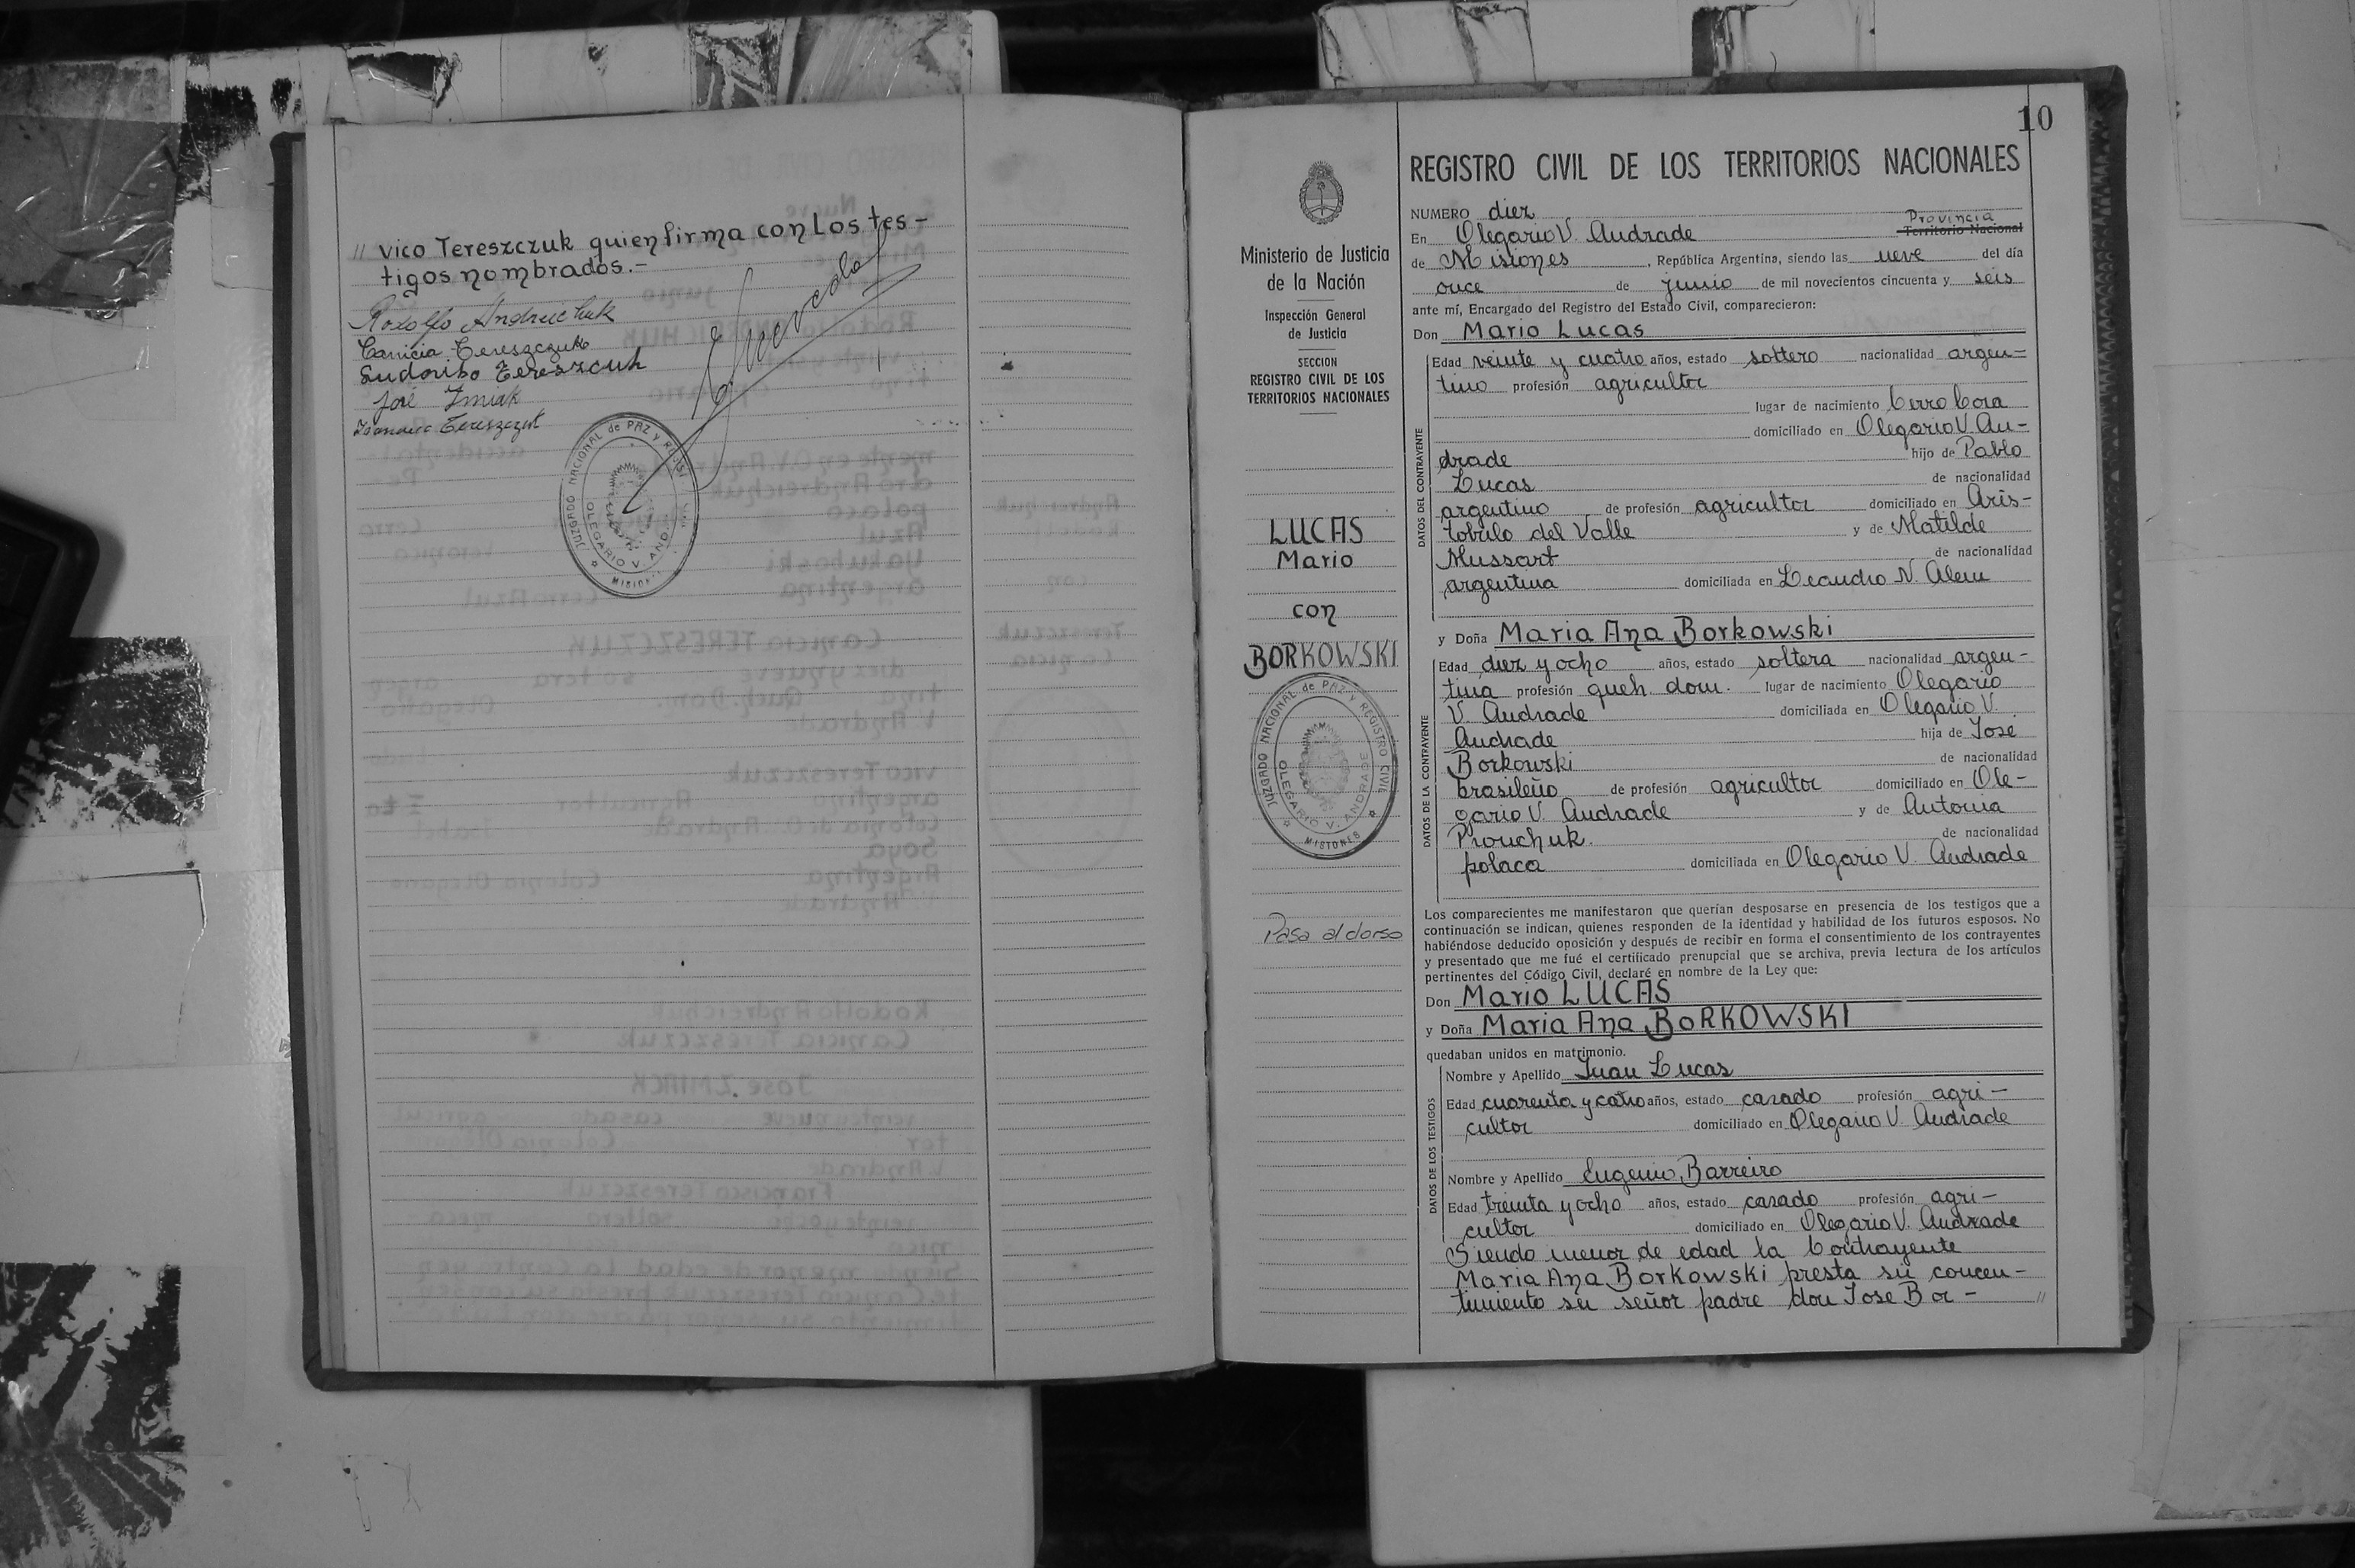 // vico Tereszczuk quien firma con Los tes-
tigos nombrados.-
Rodolfo Andreichuk
Canicia Tereszczuk
Ludovico Tereszcuk
José Zmiak
Tereszczuk
JUZGADO NACIONAL de PAZ Y REGISTRO CIVIL
OLEGARIO V. ANDRADE
MISIONES
10
Ministerio de Justicia
de la Nación
Inspección General
de Justicia
SECCION
REGISTRO CIVIL DE LOS
TERRITORIOS NACIONALES
LUCAS
Mario
con
BORKOWSKI
JUZGADO NACIONAL de PAZ Y REGISTRO CIVIL
OLEGARIO V. ANDRADE
MISIONES
Pasa al dorso
REGISTRO CIVIL DE LOS TERRITORIOS NACIONALES
NUMERO diez
Provincia
En Olegario V. Andrade Territorio Nacional
de Misiones, República Argentina, siendo las ueve del día
once de junio de mil novecientos cincuenta y seis
ante mí, Encargado del Registro del Estado Civil, comparecieron:
Don Mario Lucas
DATOS DEL CONTRAYENTE
Edad veinte y cuatro años, estado soltero nacionalidad argen-
tino profesión agricultor
lugar de nacimiento Cerro Cora
domiciliado en Olegario V. An-
drade hijo de Pablo
Lucas de nacionalidad
argentino de profesión agricultor domiciliado en Aris-
tobulo del Valle y de Matilde
Mussart de nacionalidad
argentina domiciliada en Leandro N. Alem
y Doña Maria Ana Borkowski
DATOS DE LA CONTRAYENTE
Edad diez y ocho años, estado soltera nacionalidad argen-
tina profesión queh. dom. lugar de nacimiento Olegario
V. Andrade domiciliada en Olegario V.
Andrade hija de José
Borkowski de nacionalidad
brasileño de profesión agricultor domiciliado en Ole-
gario V. Andrade y de Antonia
Piouchuk. de nacionalidad
polaca domiciliada en Olegario V. Andrade
Los comparecientes me manifestaron que querían desposarse en presencia de los testigos que a
continuación se indican, quienes responden de la identidad y habilidad de los futuros esposos. No
habiéndose deducido oposición y después de recibir en forma el consentimiento de los contrayentes
y presentado que me fué el certificado prenupcial que se archiva, previa lectura de los artículos
pertinentes del Código Civil, declaré en nombre de la Ley que:
Don Mario LUCAS
y Doña Maria Ana BORKOWSKI
quedaban unidos en matrimonio.
DATOS DE LOS TESTIGOS
Nombre y Apellido Juan Lucas
Edad cuarenta y catro años, estado casado profesión agri-
cultor domiciliado en Olegario V. Andrade
Nombre y Apellido Eugenio Barreiro
Edad treinta y ocho años, estado casado profesión agri-
cultor domiciliado en Olegario V. Andrade
Siendo menor de edad la Contrayente
Maria Ana Borkowski presta su concen-
timiento su señor padre don Jose Bor- //